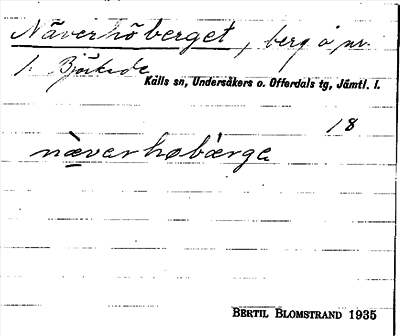 Näverhöberget, berg å nr.
1. Björkede
Källs sn, Undersåkers o. Offerdals tg, Jämtl. l.
18
nä̀verhøbárge
BERTIL BLOMSTRAND 1935